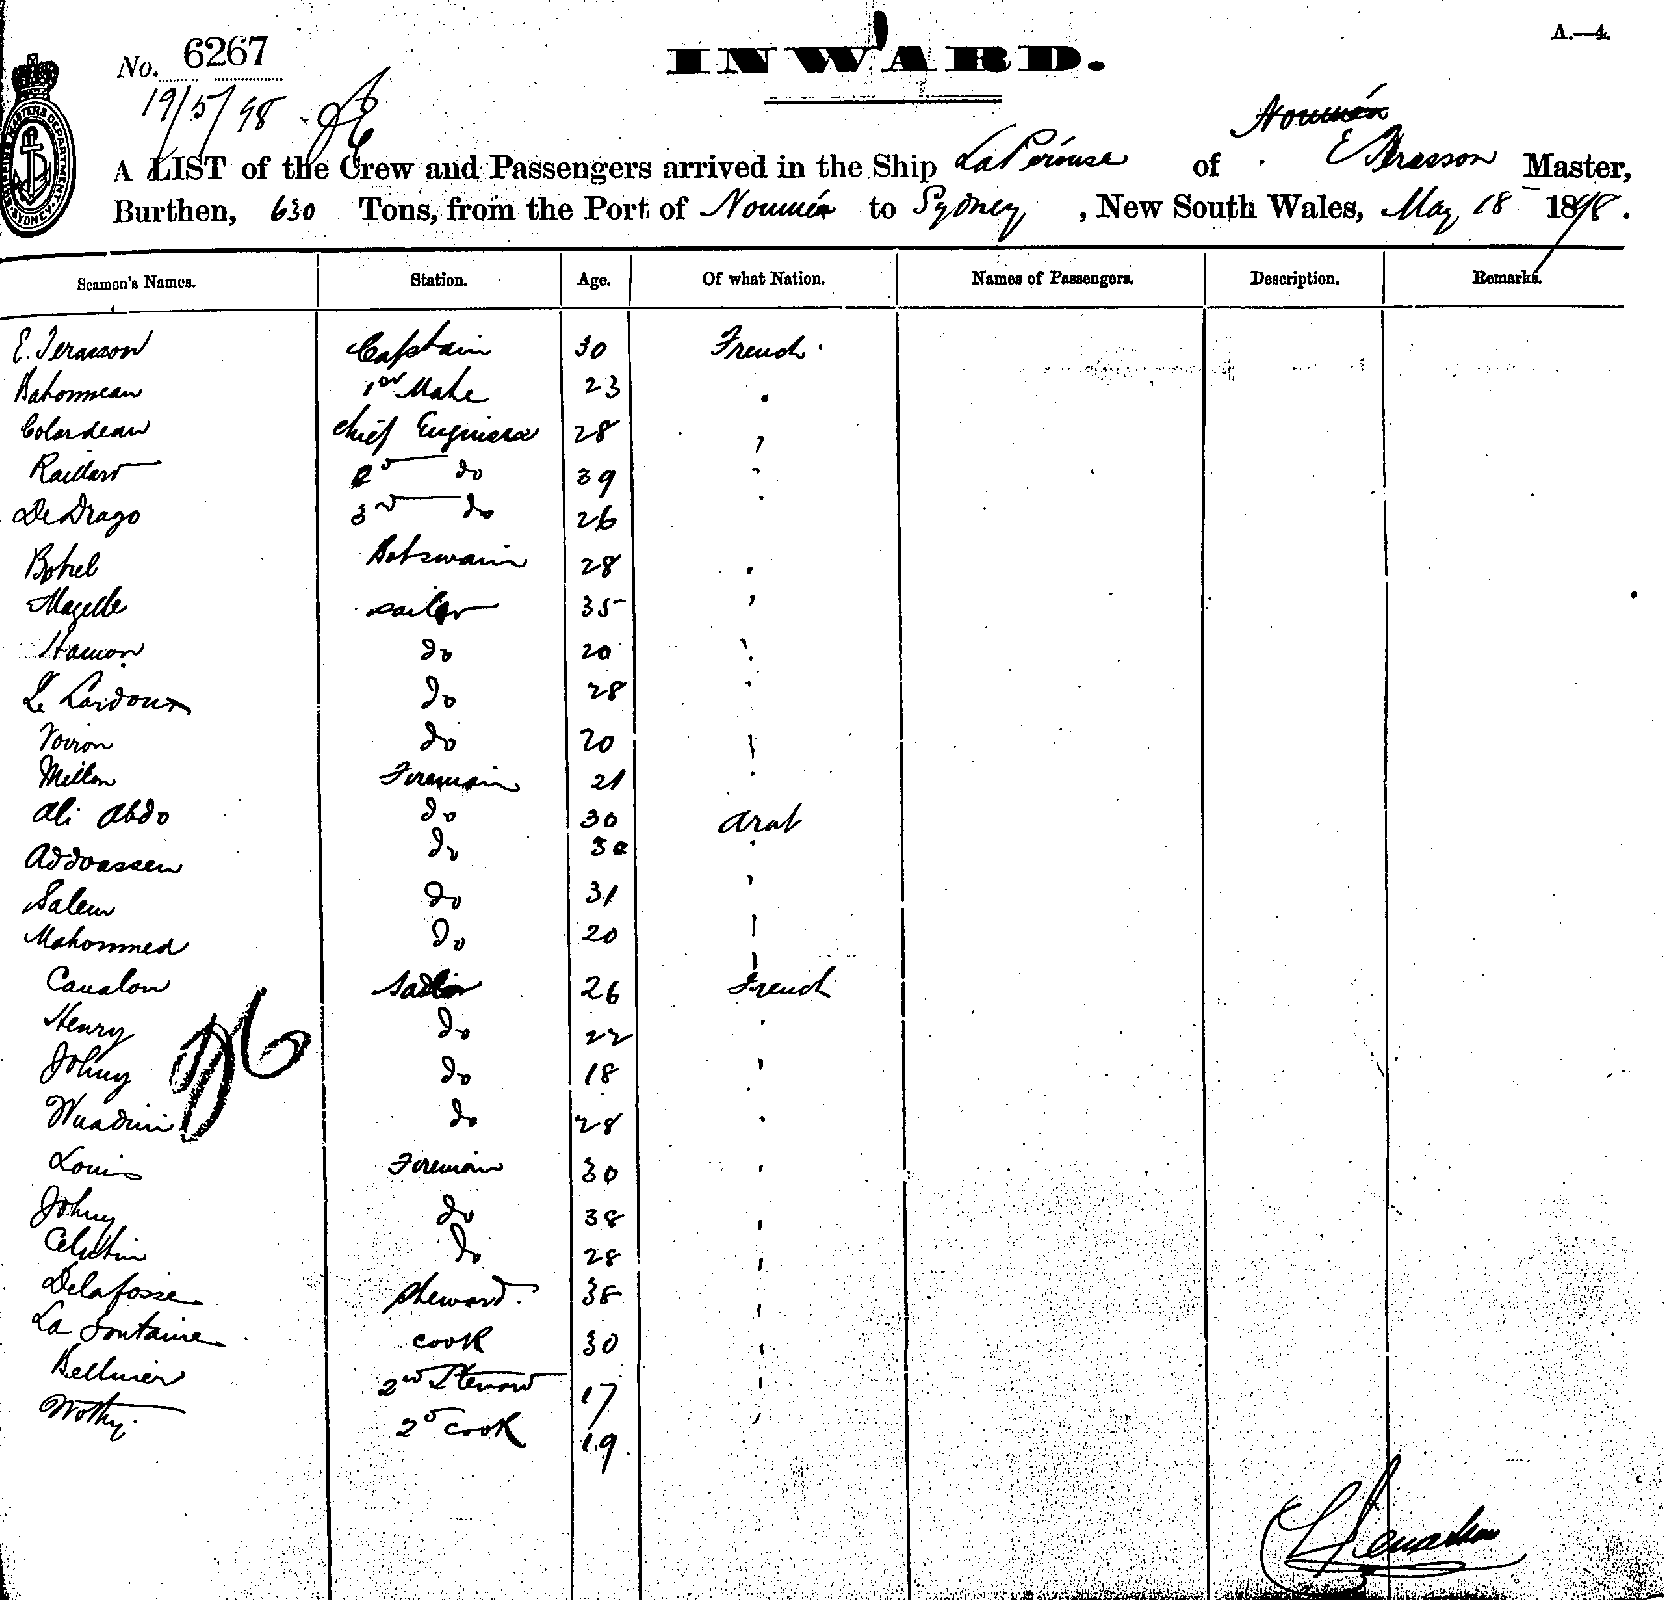 A.—4.
No. 6267
INWARD.
19/5/98
Noumén
A LIST of the Crew and Passengers arrived in the Ship La Pérouse of Master,
Burthen, 630 Tons, from the Port of Noumén to Sydney, New South Wales, May 18 1898.
Seamen's Names. Station. Age. Of what Nation. Names of Passengers. Description. Remarks.
E. Terasson Captain 30 French
Bahonneau 1st Mate 23
Colardeau chief Engineer 28
Raillard 2d do 39
De Drago 3rd do 26
Botrel Botswain 28
Mazelle sailor 35
Hamon do 20
Le Lardoux do 28
Voiron do 20
Millon Fireman 21
Ali Abdo do 30 Arab
Addoassen do 30
Salem do 31
Mahommed do 20
Canalon Sailor 26 French
Henry do 22
Johny do 18
do 28
Louis Fireman 30
Johny do 38
Celestin do 28
Delafosse steward. 38
La Fontaine cook 30
Bellmer 2nd Steward 17
Wothy. 2d cook 19.